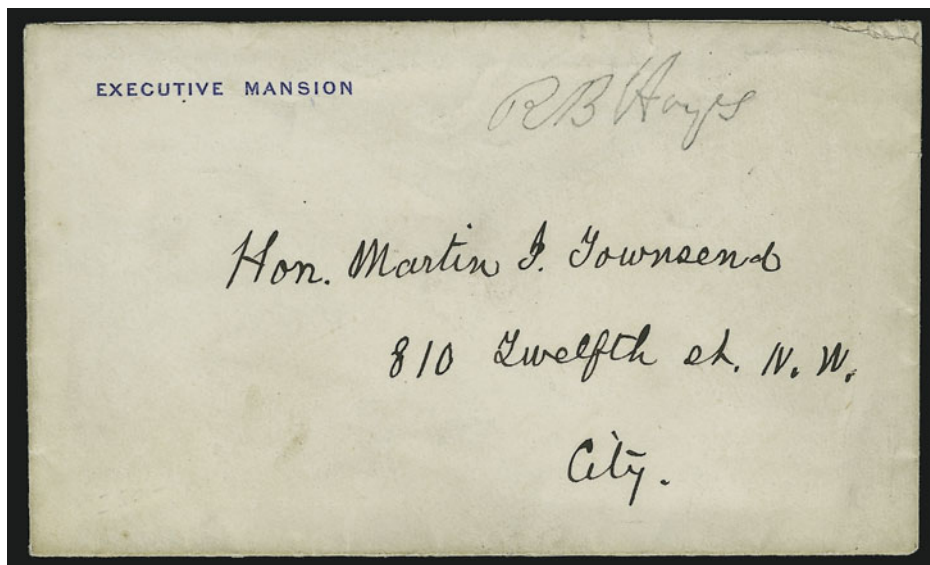 EXECUTIVE MANSION
R B Hayes
Hon. Martin I. Townsend
810 Twelfth st. N. W.
City.